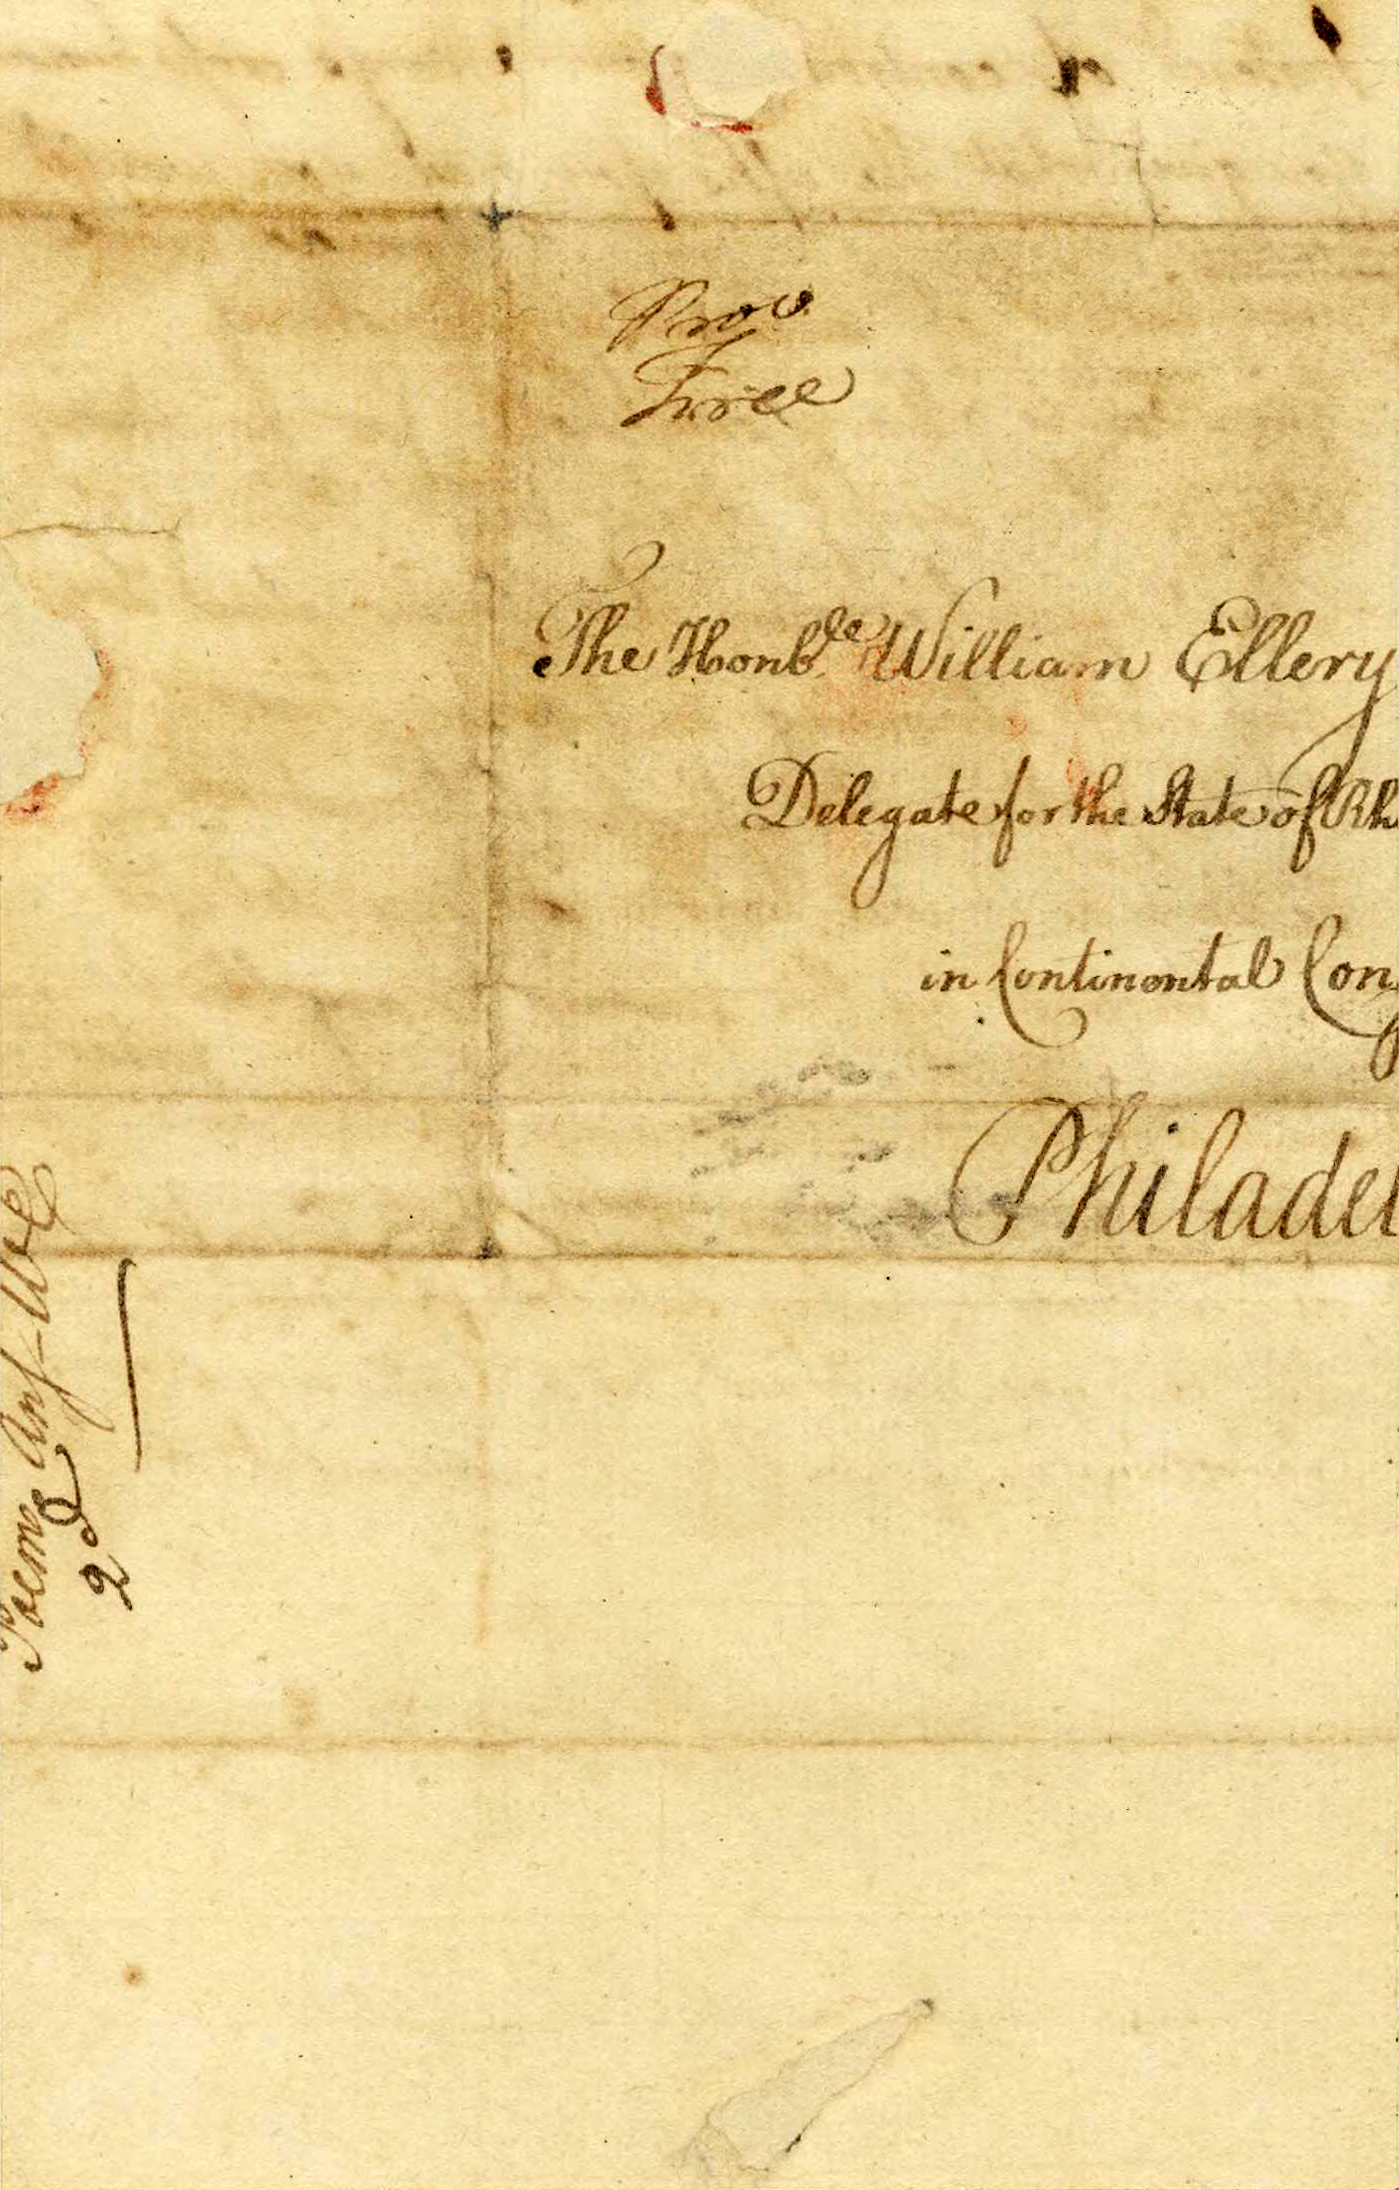 Prov.
Free
The Honb.le William Ellery
Delegate for the State of Rh
in Continental Cong
Philadel
2d